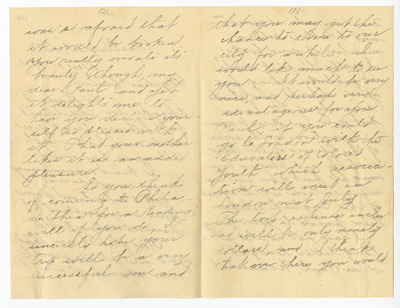 (2).
was so afraid that
it would be broken.
You really overate its
beauty though, my
dear Paul, and yet
it delights me to
hear you declare your-
self so pleased with
it. That your mother
likes it is an added
pleasure.
So you think
of coming to Phila-
delphia for a reading
will you do. I
sincerely hope your
trip will be a very
successful one and
(3).
that you may get the
chance to come to our
city for a while. I
would like much to see
you. It would be very
nice, and perhaps very
advantageous for you
Paul, if you could
go to London with the
Educators of Colored
Youth which associa-
tion will meet in
London next July.
The boat expense inclu-
ded will be only ninety
dollars, and I think
that over there you would